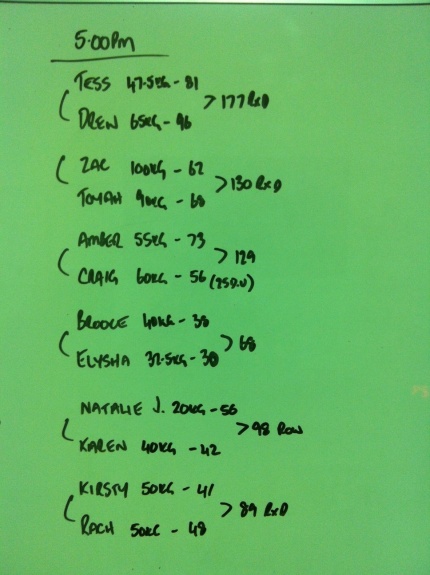 5:00PM
TESS 47.5KG - 81
> 177 RxD
DREW 65KG - 96
ZAC 100KG - 62
> 130 RxD
TOMAH 90KG - 68
AMBER 55KG - 73
> 129
CRAIG 60KG - 56 (25P.U)
BROOKE 40KG - 38
> 68
ELYSHA 37.5KG - 30
NATALIE J. 20KG - 56
> 98 ROW
KAREN 40KG - 42
KIRSTY 50KG - 41
> 89 RxD
RACH 50KG - 48